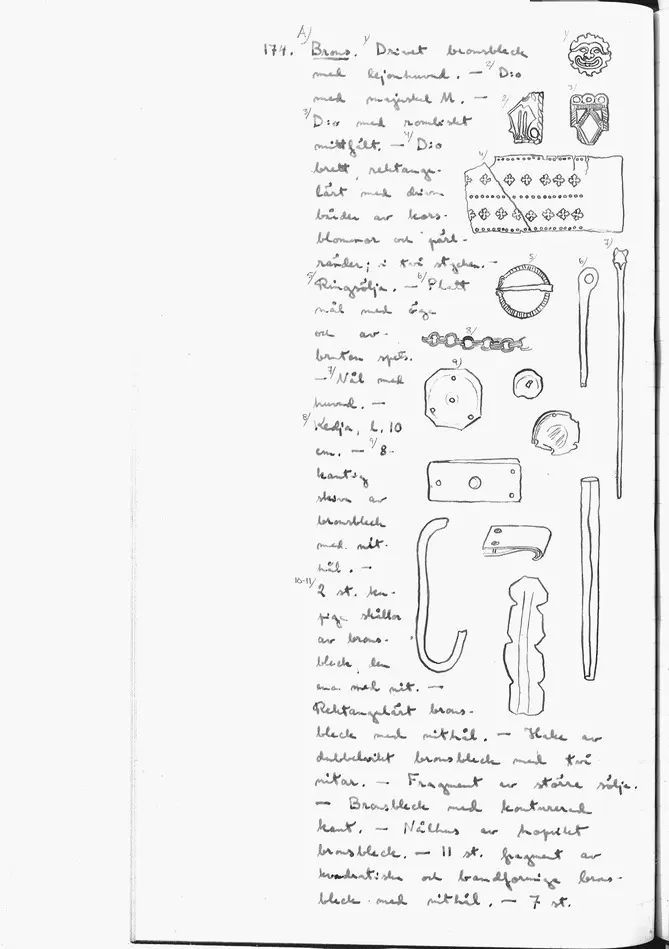 A)
174. Brons. 1) Drivet bronsbleck
med lejonhuvud. — 2) D:o
med majuskel M. —
3) D:o med rombiskt
mittfält. — 4) D:o
brett, rektangu-
lärt med drivna
bårder av kors-
blommor och pärl-
ränder; i två stycken. —
5) Ringsölja. — 6) Platt
nål med öga
och av-
bruten spets.
— 7) Nål med
huvud. —
8) Kedja, L. 10
cm. — 9) 8-
kantig
skiva av
bronsbleck
med nit-
hål. —
10-11) 2 st. ku-
piga skållor
av brons-
bleck, den
ena med nit. —
Rektangulärt brons-
bleck med nithål. — Hake av
dubbelvikt bronsbleck med två
nitar. — Fragment av större sölja.
— Bronsbleck med konturerad
kant. — Nålhus av hopvikt
bronsbleck. — 11 st. fragment av
kvadratiska och bandformiga brons-
bleck med nithål. — 7 st.
1)
2)
3)
4)
5)
6)
7)
8)
9)